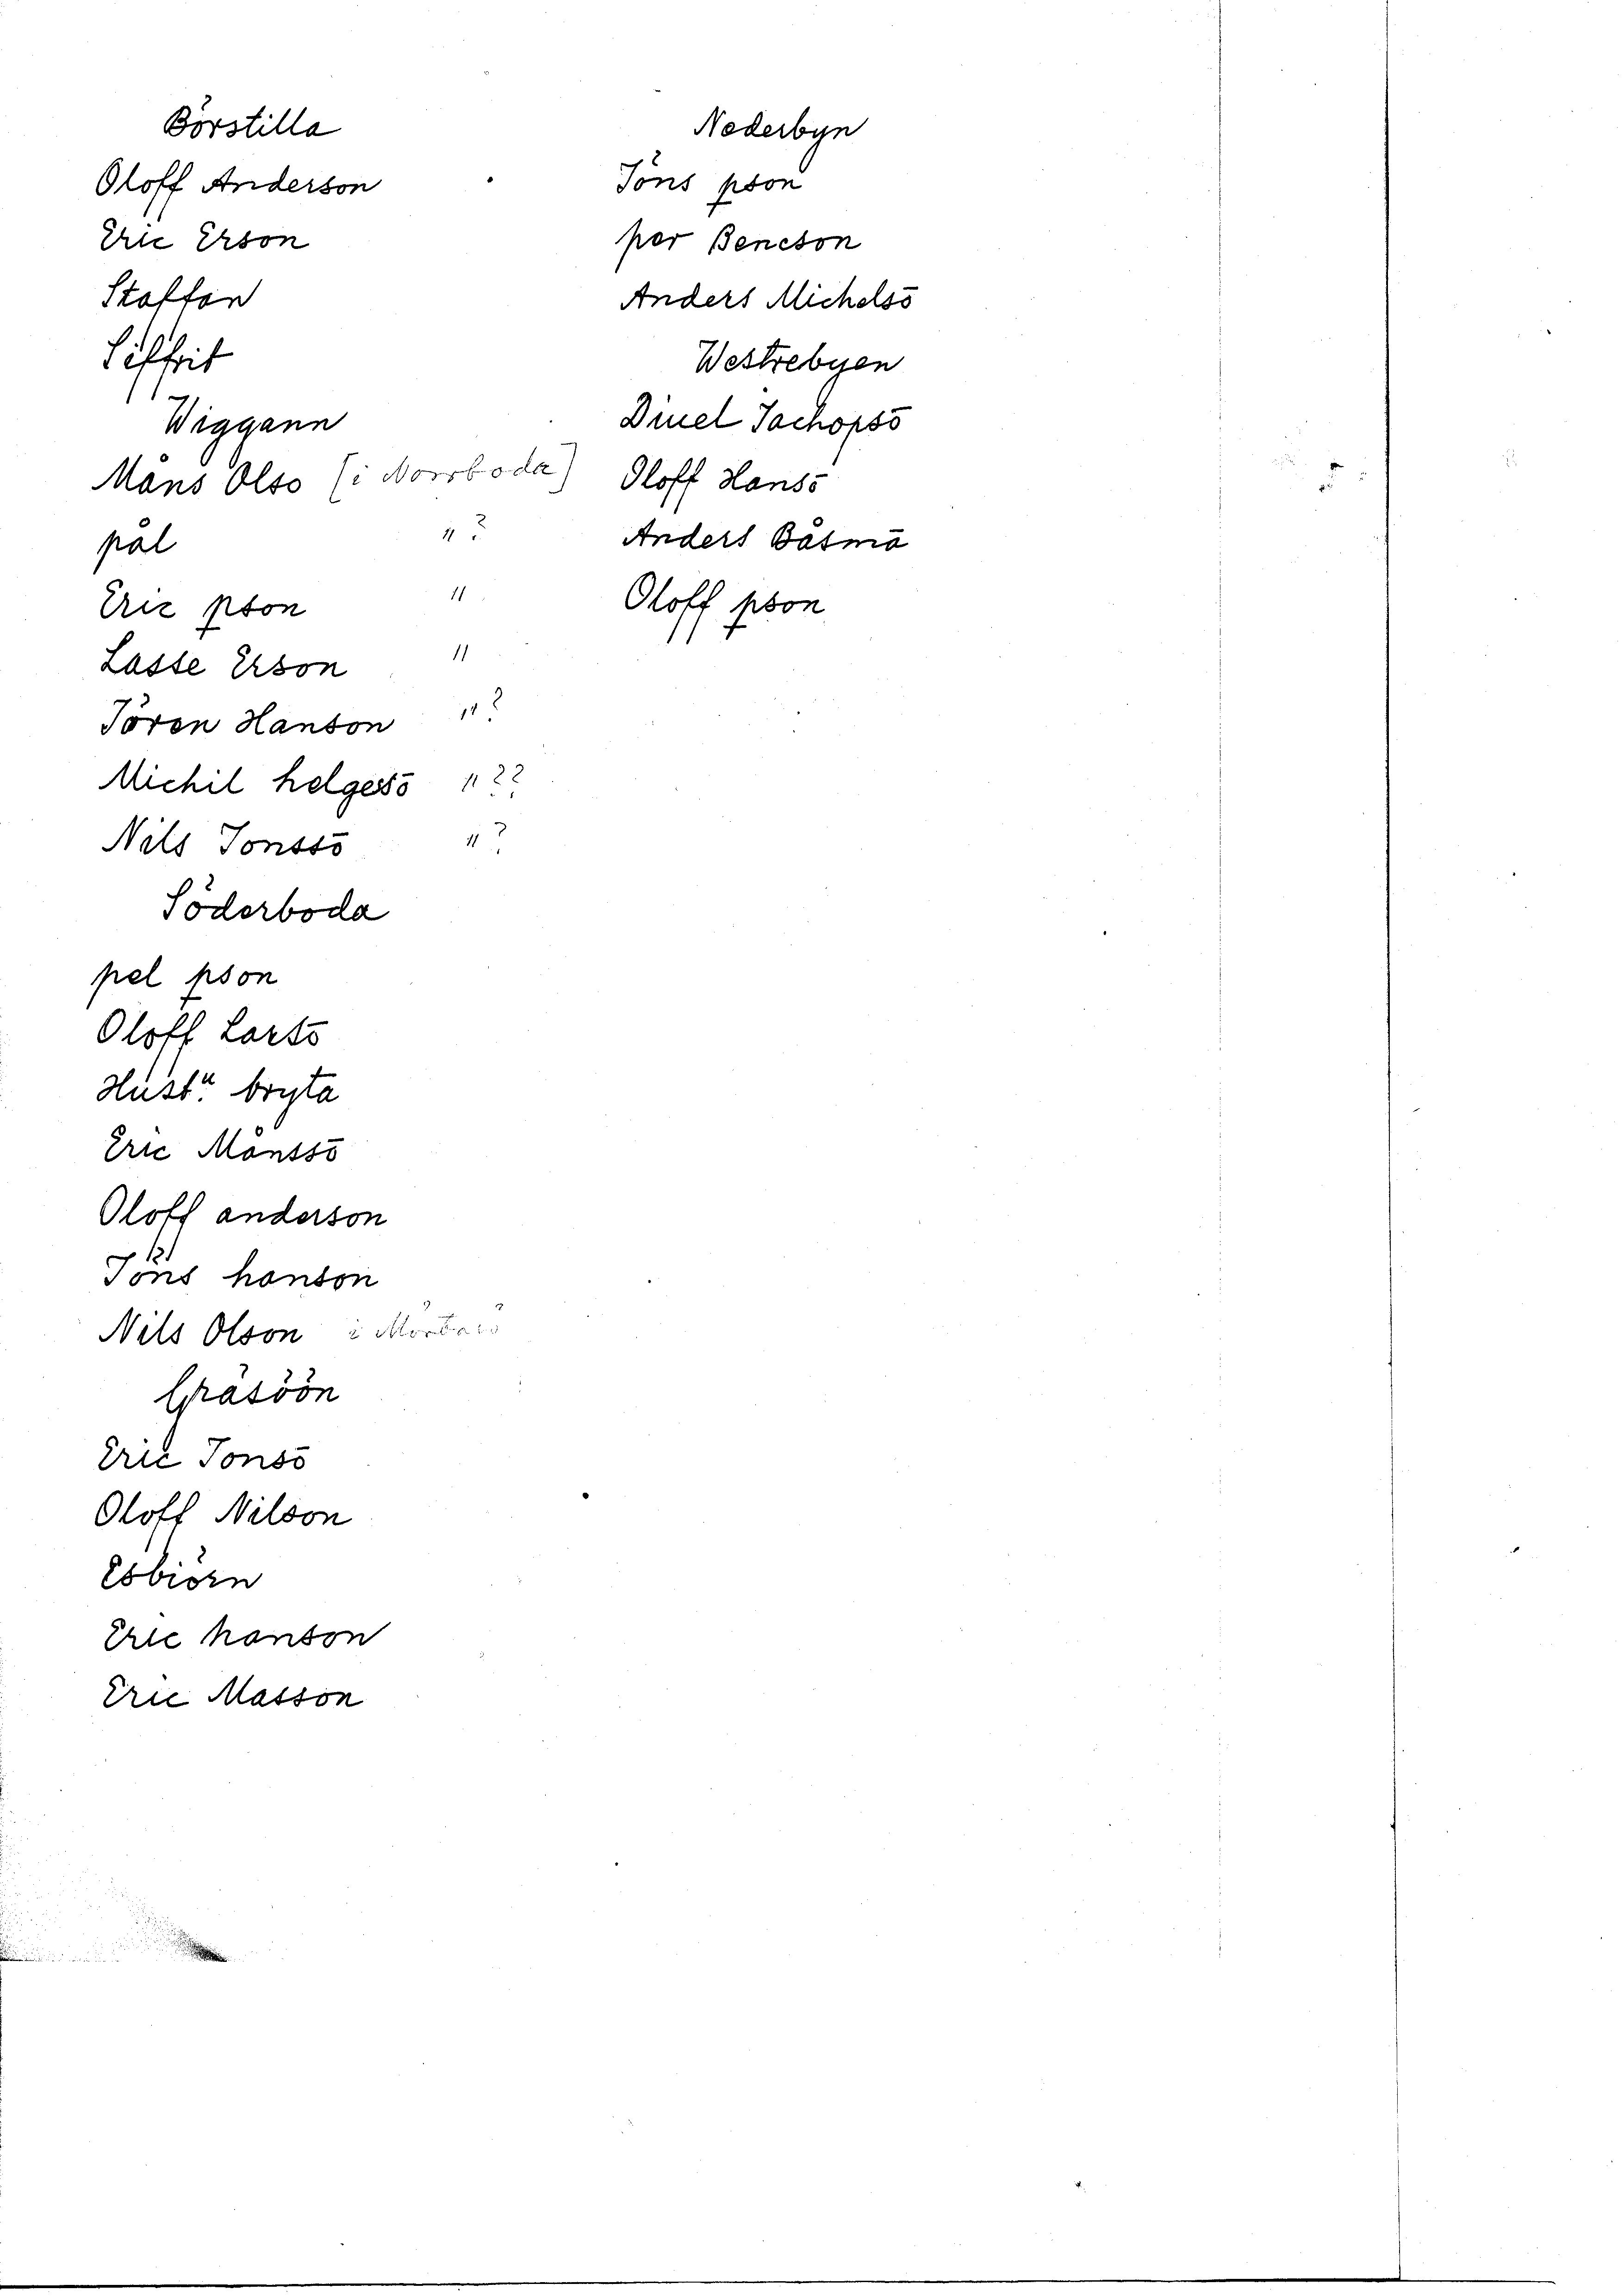 Börstilla
Oloff Anderson
Eric Erson
Staffan
Siffrit
Wiggann
Måns Olso (i Norrboda)
pål " ?
Eric pson "
Lasse Erson "
Jören Hanson " ?
Michil helgessō " ??
Nils Jonssō " ?
Söderboda
pel pson
Oloff Larsō
Hustu bryta
Eric Månssō
Oloff anderson
Jöns hanson
Nils Olson i
Gräsöön
Eric Jonsō
Oloff Nilson
Esbiörn
Eric hanson
Eric Masson
Nederbyn
Jöns pson
per Bencson
Anders Michelsō
Westrebyen
Dinel Jachopsō
Oloff Hansō
Anders Båsmā
Oloff pson